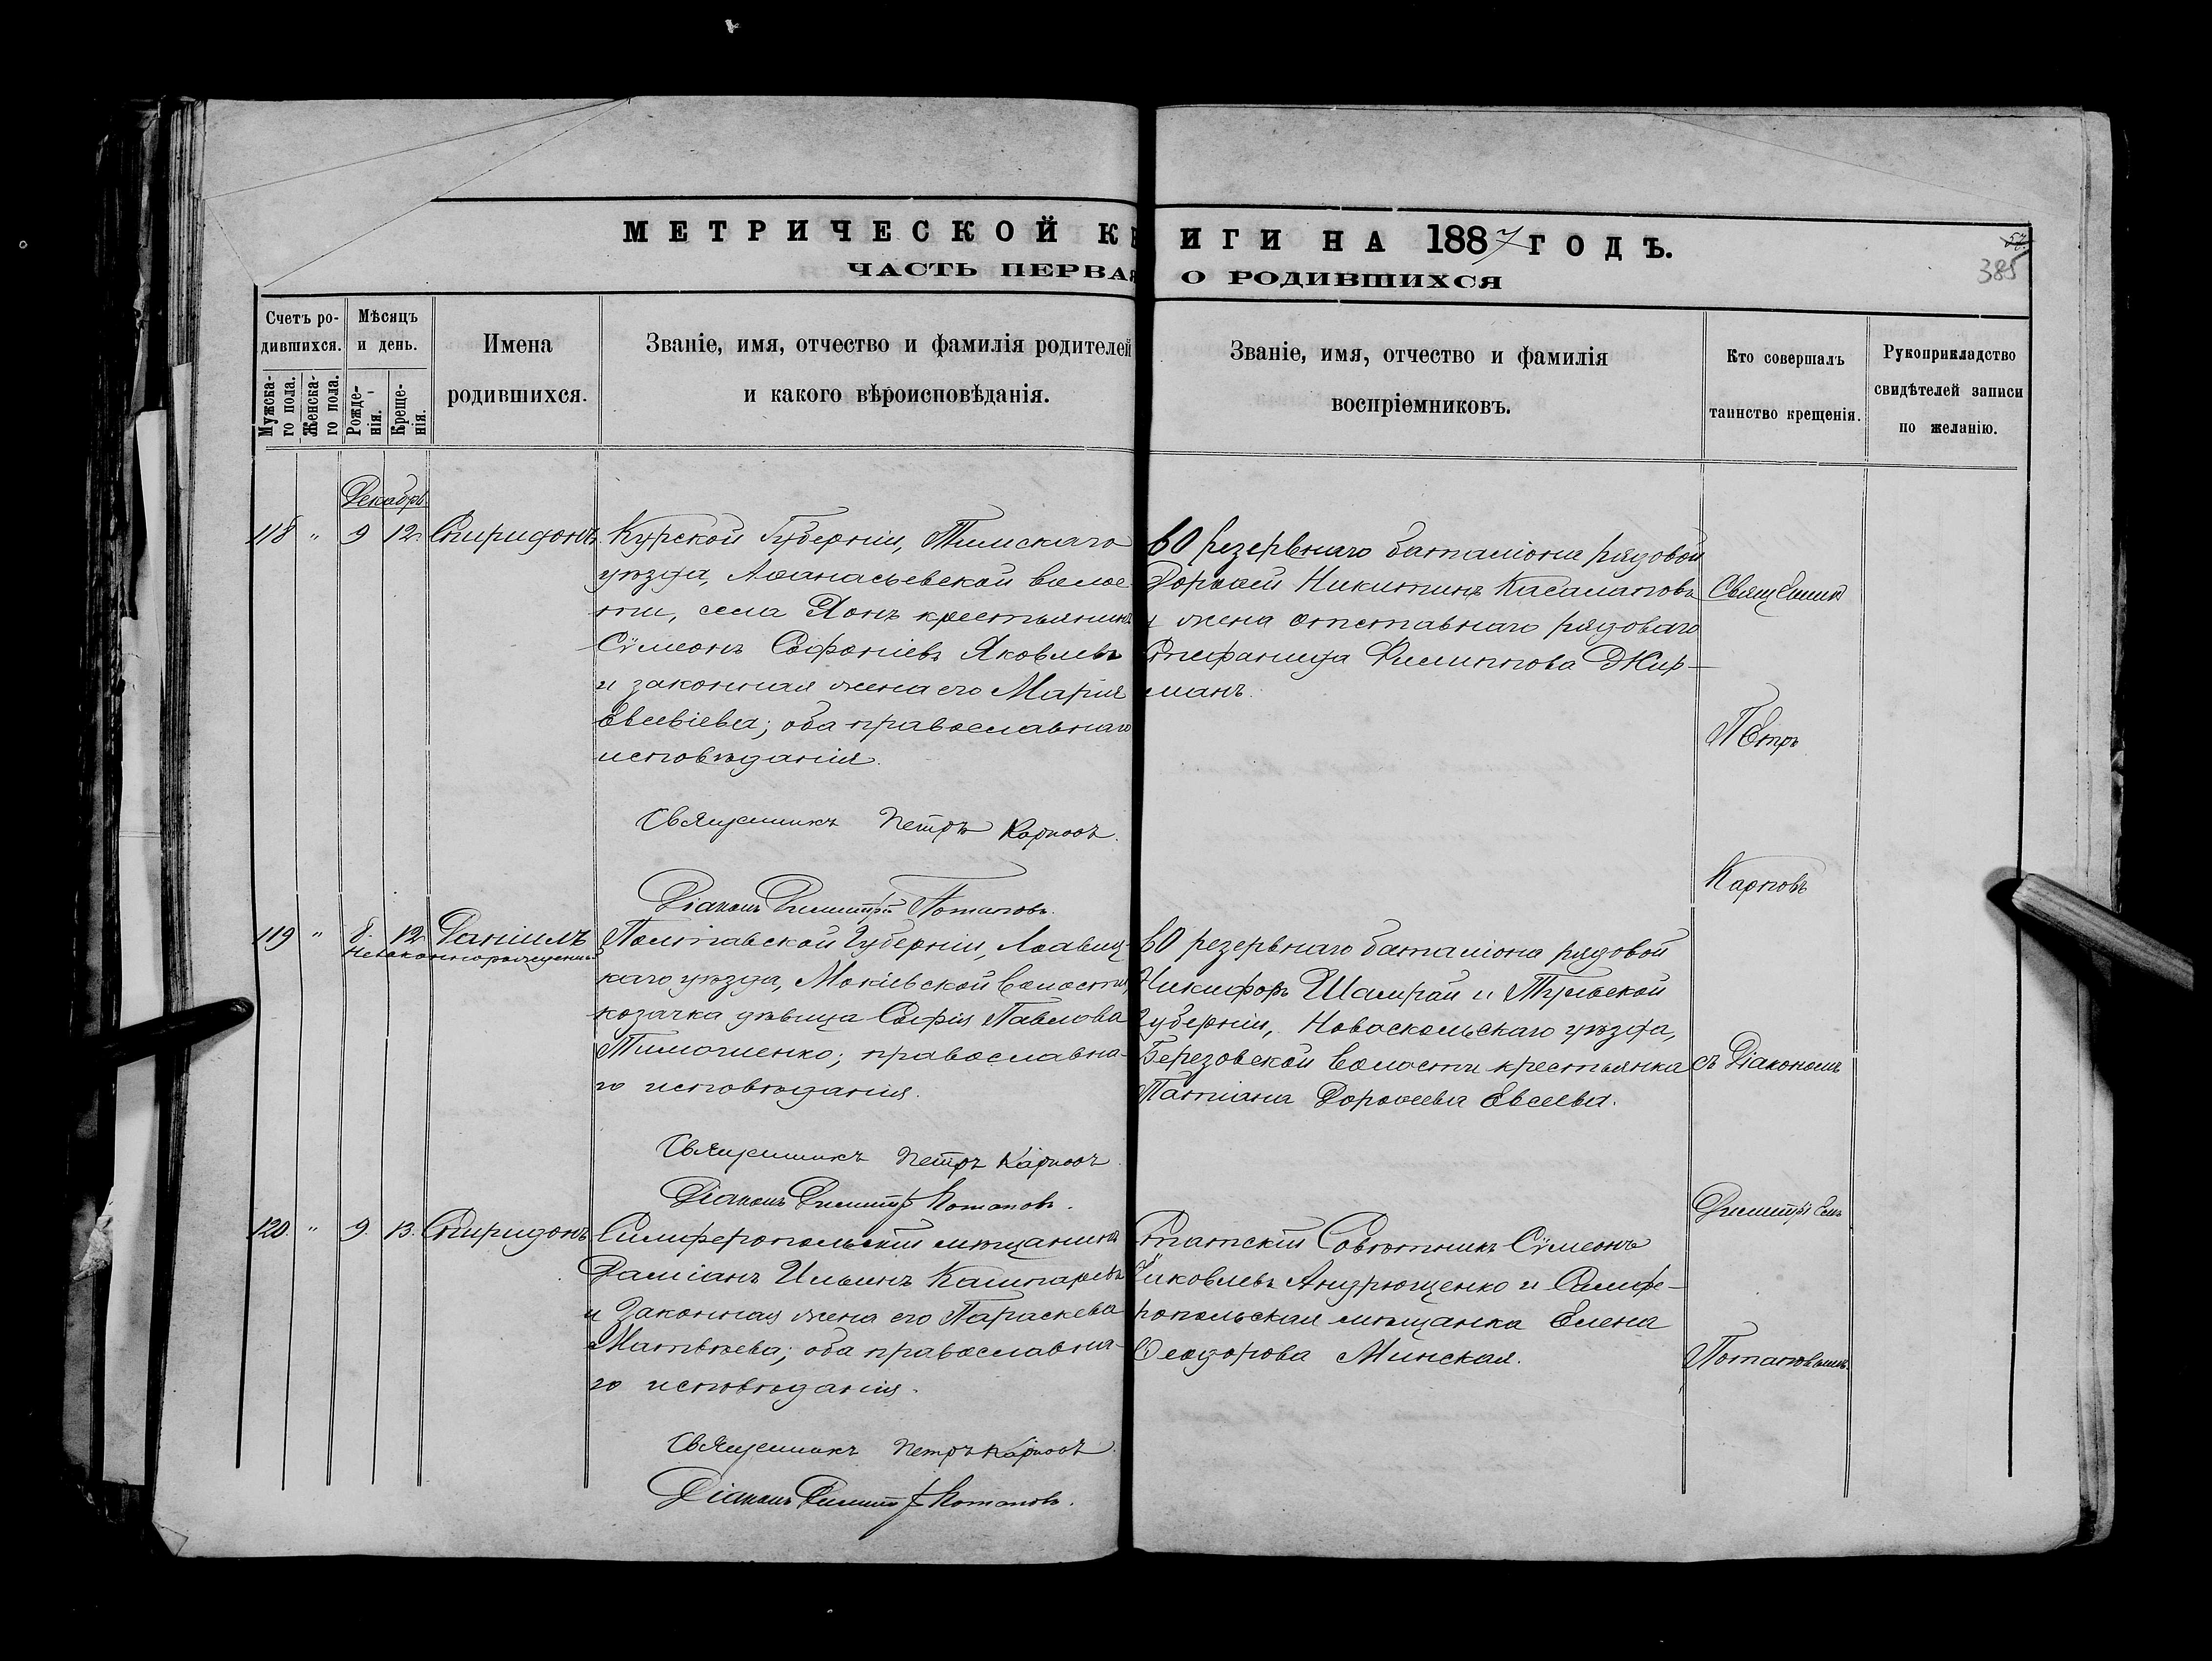 МЕТРИЧЕСКОЙ КНИГИ НА 1887 ГОДЪ.
ЧАСТЬ ПЕРВАЯ О РОДИВШИХСЯ
57.
385
Счетъ ро-
дившихся.
Мужска-
го пола.
Женска-
го пола.
Мѣсяцъ
и день.
Рожде-
нія.
Креще-
нія.
Имена
родившихся.
Званіе, имя, отчество и фамилія родителей
и какого вѣроисповѣданія.
Званіе, имя, отчество и фамилія
воспріемниковъ.
Кто совершалъ
таинство крещенія.
Рукоприкладство
свидѣтелей записи
по желанію.
Декабрь
118 " 9 12. Спиридонъ
Курской Губерніи, Тимскаго
уѣзда, Аѳанасьевской волос-
ти, села Яонъ крестьянинъ
Сѵмеонъ Софоніевъ Яковлевъ
и законная жена его Марія
Евсевіева; оба православнаго
исповѣданія.
Священникъ Петръ Карповъ.
Діаконъ Димитрій Потаповъ.
60 резервнаго баталіона рядовой
Дороѳей Никитинъ Касалаповъ
и жена отставнаго рядоваго
Стефанида Филиппова Жир-
манъ.
Священникъ
Петръ
Карповъ
119 " 8. 12. Даніилъ
Незаконнорожденный
Полтавской Губерніи, Лохвиц-
каго уѣзда, Мокіевской волости,
козачка дѣвица Софія Павлова
Тимошенко; православна-
го исповѣданія.
Священникъ Петръ Карповъ.
Діаконъ Димитрій Потаповъ.
60 резервнаго баталіона рядовой
Никифоръ Шамрай и Тульской
Губерніи, Новоскольскаго уѣзда,
Березовской волости крестьянка
Татіана Дороѳеева Евсеева.
съ Діакономъ
120. " 9. 13. Спиридонъ
Симферопольскій мѣщанинъ
Даміанъ Ильинъ Каштаревъ
и законная жена его Параскева
Матвѣева; оба православна-
го исповѣданія.
Священникъ Петръ Карповъ.
Діаконъ Димитрій Потаповъ.
Статскій Совѣтникъ Сѵмеонъ
Яковлевъ Андрющенко и Симфе-
ропольская мѣщанка Елена
Ѳеодорова Минская.
Димитріемъ
Потаповымъ.